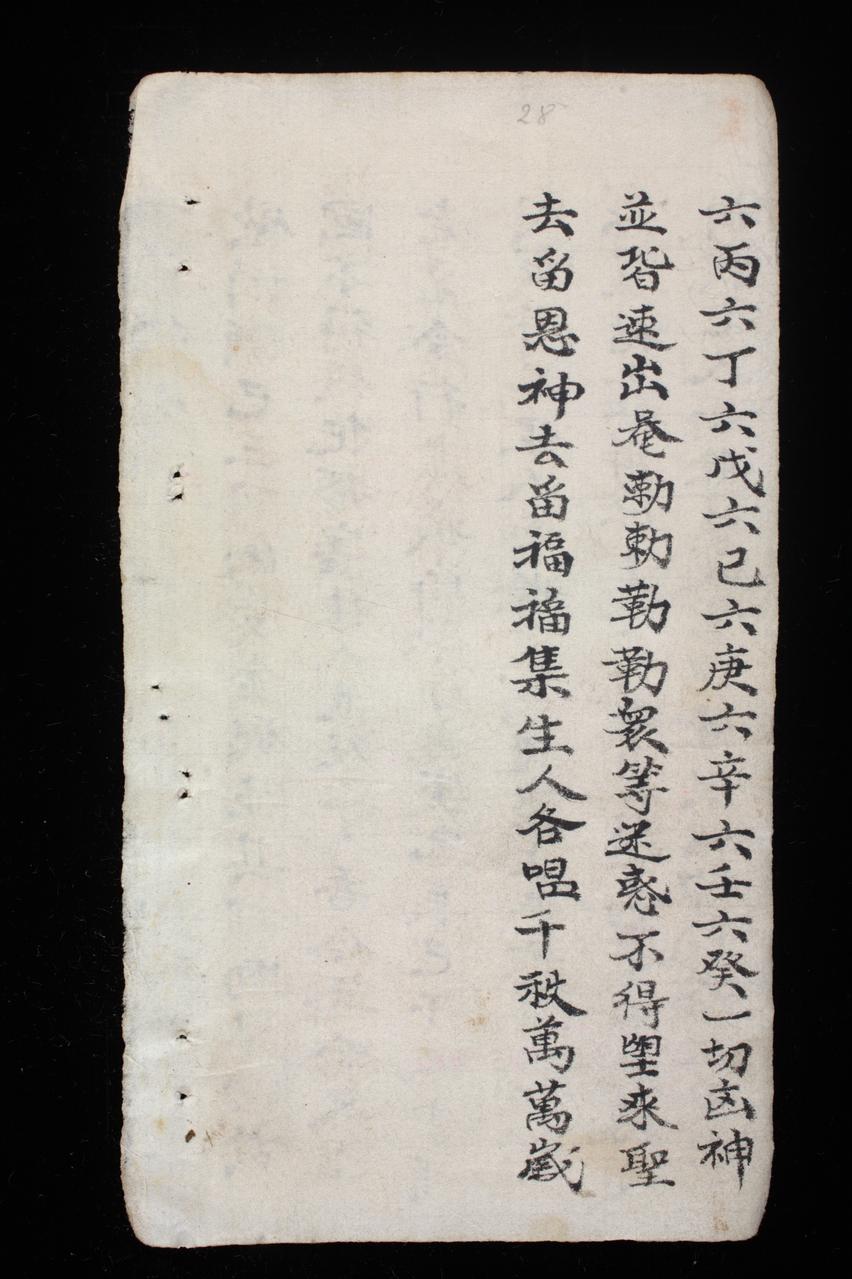 28
六丙六丁六戊六己六庚六辛六壬六癸一切凶神
並皆速出菴勅勅勒勒衆等迷惑不得望來聖
去留恩神去留福福集生人各唱千秋萬萬歲